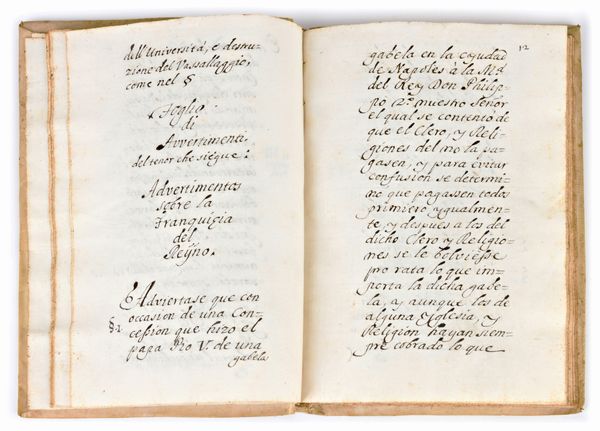 dell Università, e destru-
zione del Vassallaggio,
come nel §
Foglio
di
Avvertimenti,
del tenor che siegue:
Advertimentos
sobre la
Franquizia
del
Reyno.
§.1.
Adviertase que con
occasion de una Con-
cession que hizo el
papa Pio V. de una
gabela
12
gabela en la cyudad
de Napoles à la Md.
del Rey Don Philip-
po 2º. nuestro Señor
el qual se contentò de
que el Clero, y Reli-
giones del no la pa-
gasen, y para evitar
confusion se determi-
no que pagassen todos
primiero ygualmen-
te, y despues a los del
dicho Clero y Religio-
nes se le bolviesse
pro rata lo que im-
porta la dicha gabe-
la, y aunque los de
alguna Yglesia, y
Religion hayan siem-
pre cobrado lo que